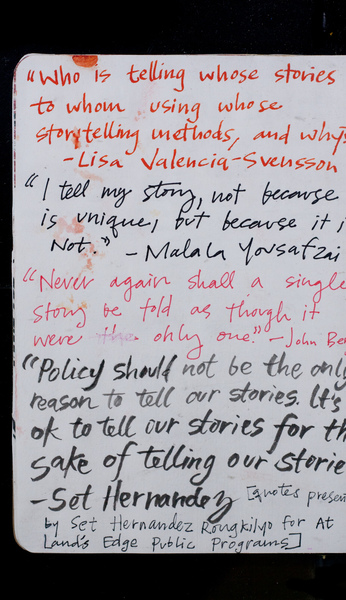 "Who is telling whose stories
to whom using whose
storytelling methods, and why?
-Lisa Valencia-Svensson
"I tell my story, not because
is unique, but because it i
Not." - Malala Yousafzai
"Never again shall a single
story be told as though it
were the only one." - John Be
"Policy should not be the only
reason to tell our stories. It's
ok to tell our stories for th
sake of telling our storie
-Set Hernandez [quotes presen
by Set Hernandez Rongkilyo for At
Land's Edge Public Programs]